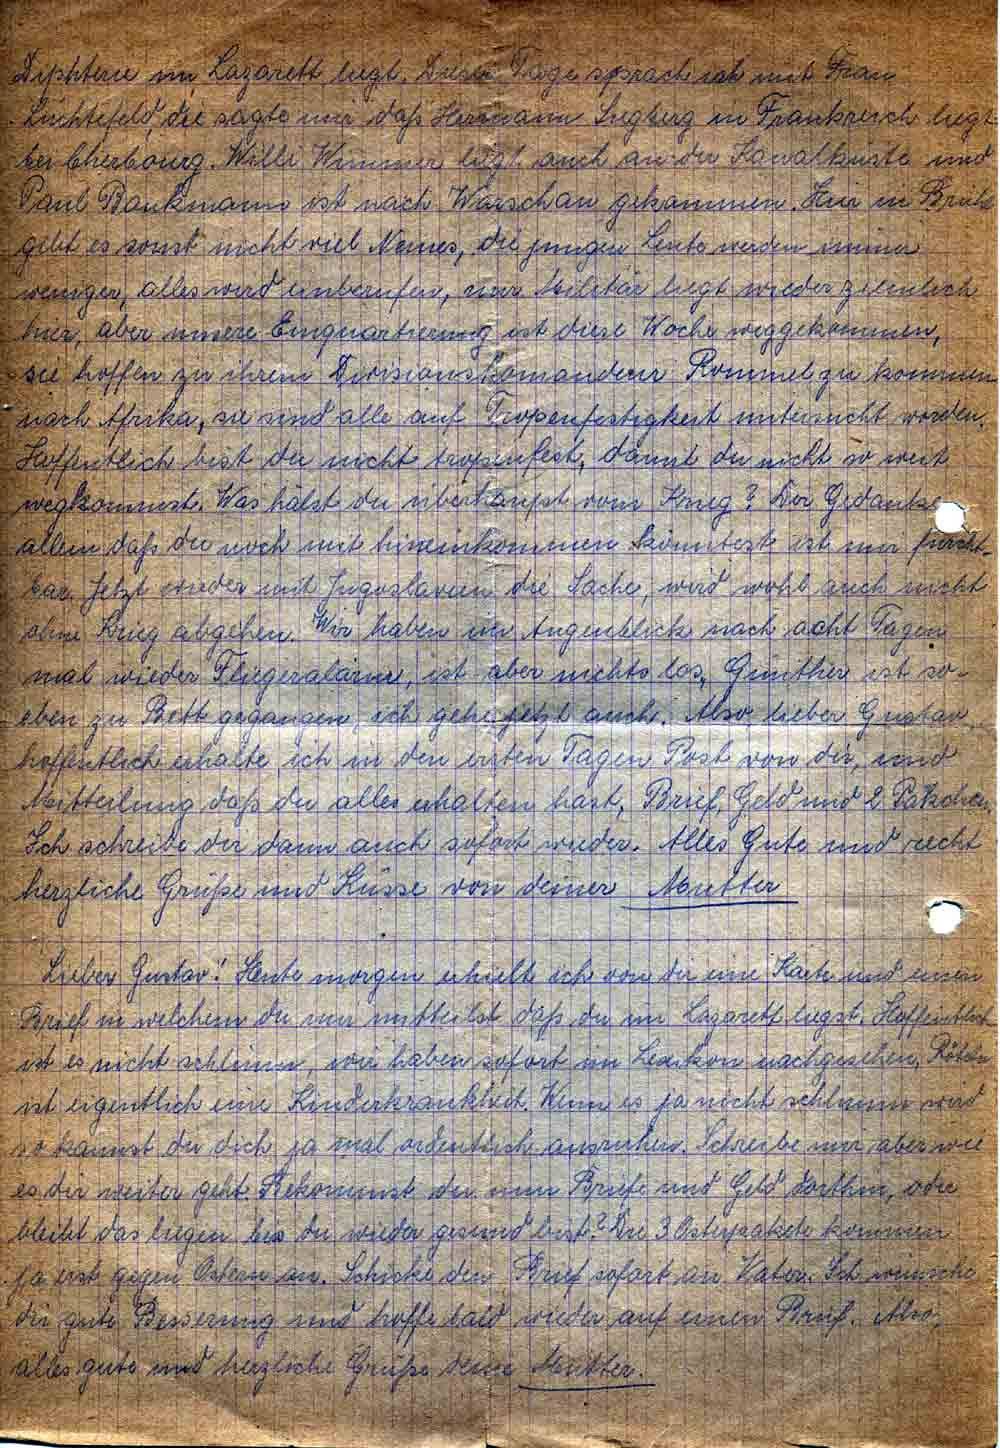 Diphterie im Lazarett liegt. Dieser Tage sprach ich mit Frau
Lüchtefeld, die sagte mir daß Hermann Siegberg in Frankreich liegt
bei Cherbourg. Willi Wimmer liegt auch an der Kanalküste und
Paul Bankmann ist nach Warschau gekommen. Hier in
gibt es sonst nicht viel Neues, die jungen Leute werden immer
weniger, alles wird einberufen, nur Militär liegt wieder ziemlich
hier, aber unsere Einquartierung ist diese Woche weggekommen,
sie hoffen zu ihrem Divisionskomandeur Rommel zu kommen
nach Afrika, sie sind alle auf Tropenfestigkeit untersucht worden.
Hoffentlich bist du nicht tropenfest, damit du nicht so weit
wegkommst. Was hälst du überhaupt vom Krieg? Der Gedanke
allein daß du noch mit hineinkommen könntest ist mir furcht-
bar. Jetzt wieder mit Jugoslavien die Sache, wird wohl auch nicht
ohne Krieg abgehen. Wir haben im Augenblick nach acht Tagen
mal wieder Fliegeralarm, ist aber nichts los, Günther ist so-
eben zu Bett gegangen, ich gehe jetzt auch. Also lieber Gustav
hoffentlich erhalte ich in den ersten Tagen Post von dir, und
Mitteilung daß du alles erhalten hast, Brief, Geld und 2 Päkchen.
Ich schreibe dir dann auch sofort wieder. Alles Gute und recht
herzliche Grüße und Küsse von deiner Mutter
Lieber Gustav! Heute morgen erhielt ich von dir eine Karte und einen
Brief in welchem du mir mitteilst daß du im Lazarett liegst. Hoffentlich
ist es nicht schlimm, wir haben sofort im Lexikon nachgesehen, Röteln
ist eigentlich eine Kinderkrankheit. Wenn es ja nicht schlimm wird
so kannst du dich ja mal ordentlich ausruhen. Schreibe mir aber wie
es dir weiter geht. Bekommst du nun Briefe und Geld dorthin, oder
bleibt das liegen bis du wieder gesund bist? Die 3 Osterpakete kommen
ja erst gegen Ostern an. Schicke den Brief sofort an Vater. Ich wünsche
dir gute Besserung und hoffe bald wieder auf einen Brief. Also,
alles gute und herzliche Grüße deine Mutter.